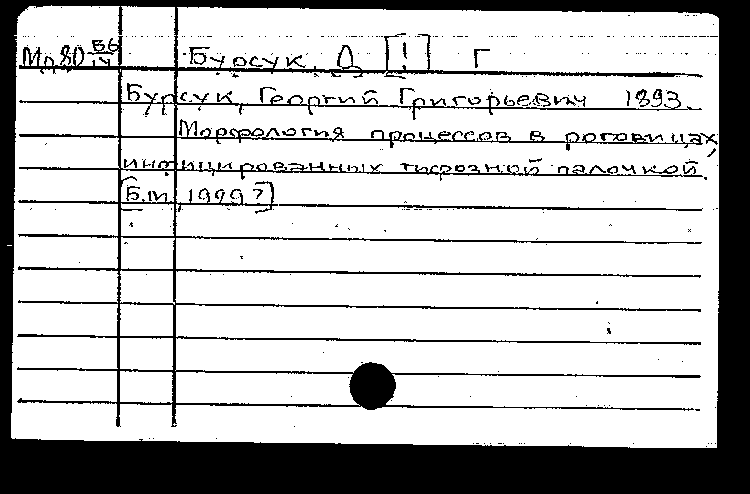 Мд 80 Б6/IV Бурсук, Д [!] Г
Бурсук, Георгий Григорьевич 1893.
Морфология процессов в роговицах,
инфицированных тифозной палочкой.
[Б.м., 1929?]